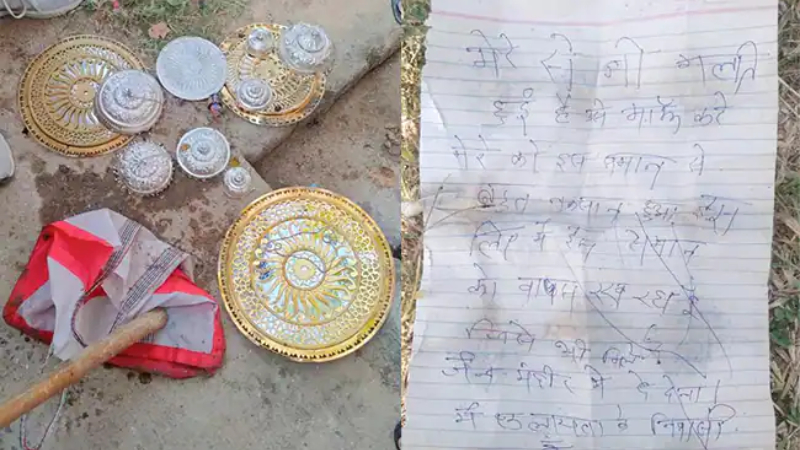 मेरे से जो गलती
हुई है माफ करे
मेरे को इस समान से
बहुत नुकसान हुआ इस
लिए मे इस समान
को वापस रख रहा
जिसे भी मिले
जैन मंदीर मे दे देना।
मे के